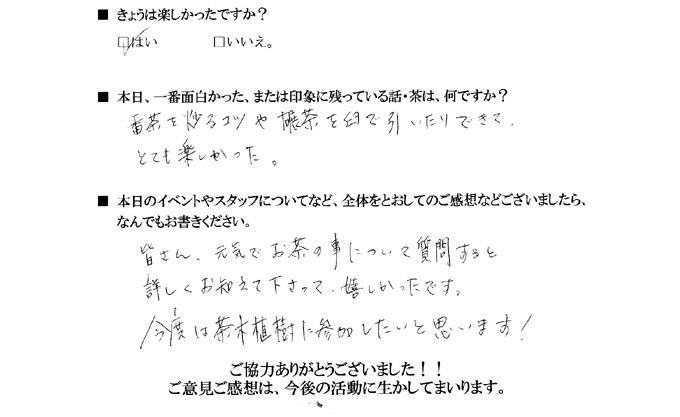 ■ きょうは楽しかったですか？
☑はい　□いいえ。
■ 本日、一番面白かった、または印象に残っている話・茶は、何ですか？
番茶を炒るコツや碾茶を臼で引いたりできて、
とても楽しかった。
■ 本日のイベントやスタッフについてなど、全体をとおしてのご感想などございましたら、
なんでもお書きください。
皆さん、元気でお茶の事について質問すると
詳しくお知えて下さって、嬉しかったです。
今度は茶木植樹に参加したいと思います！
ご協力ありがとうございました！！
ご意見ご感想は、今後の活動に生かしてまいります。